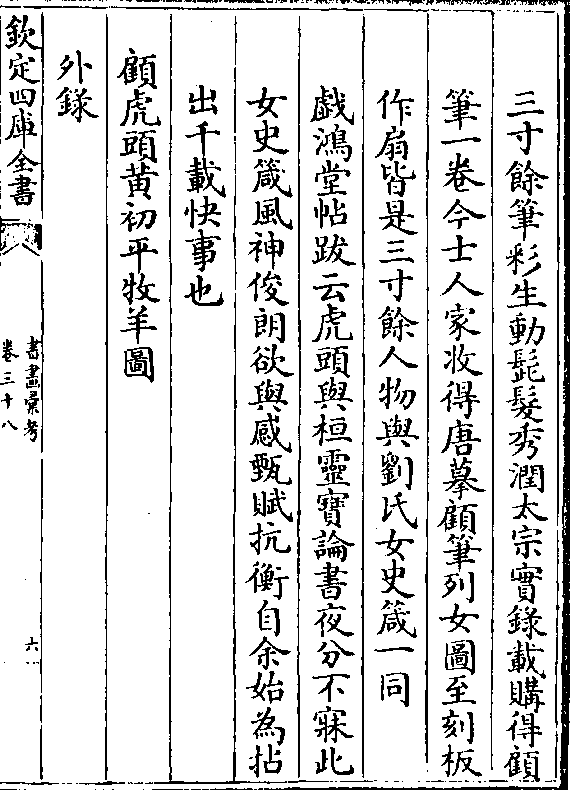 三寸餘筆彩生動髭髮秀潤太宗實錄載購得顧
筆一卷今士人家收得唐摹顧筆列女圖至刻板
作扇皆是三寸餘人物與劉氏女史箴一同
戯鴻堂帖跋云虎頭與桓靈寶論書夜分不寐此
女史箴風神俊朗欲與感甄賦抗衡自余始為拈
出千載快事也
顧虎頭黄初平牧羊圖
外錄
欽定四庫全書
書畫彚考
卷三十八
六